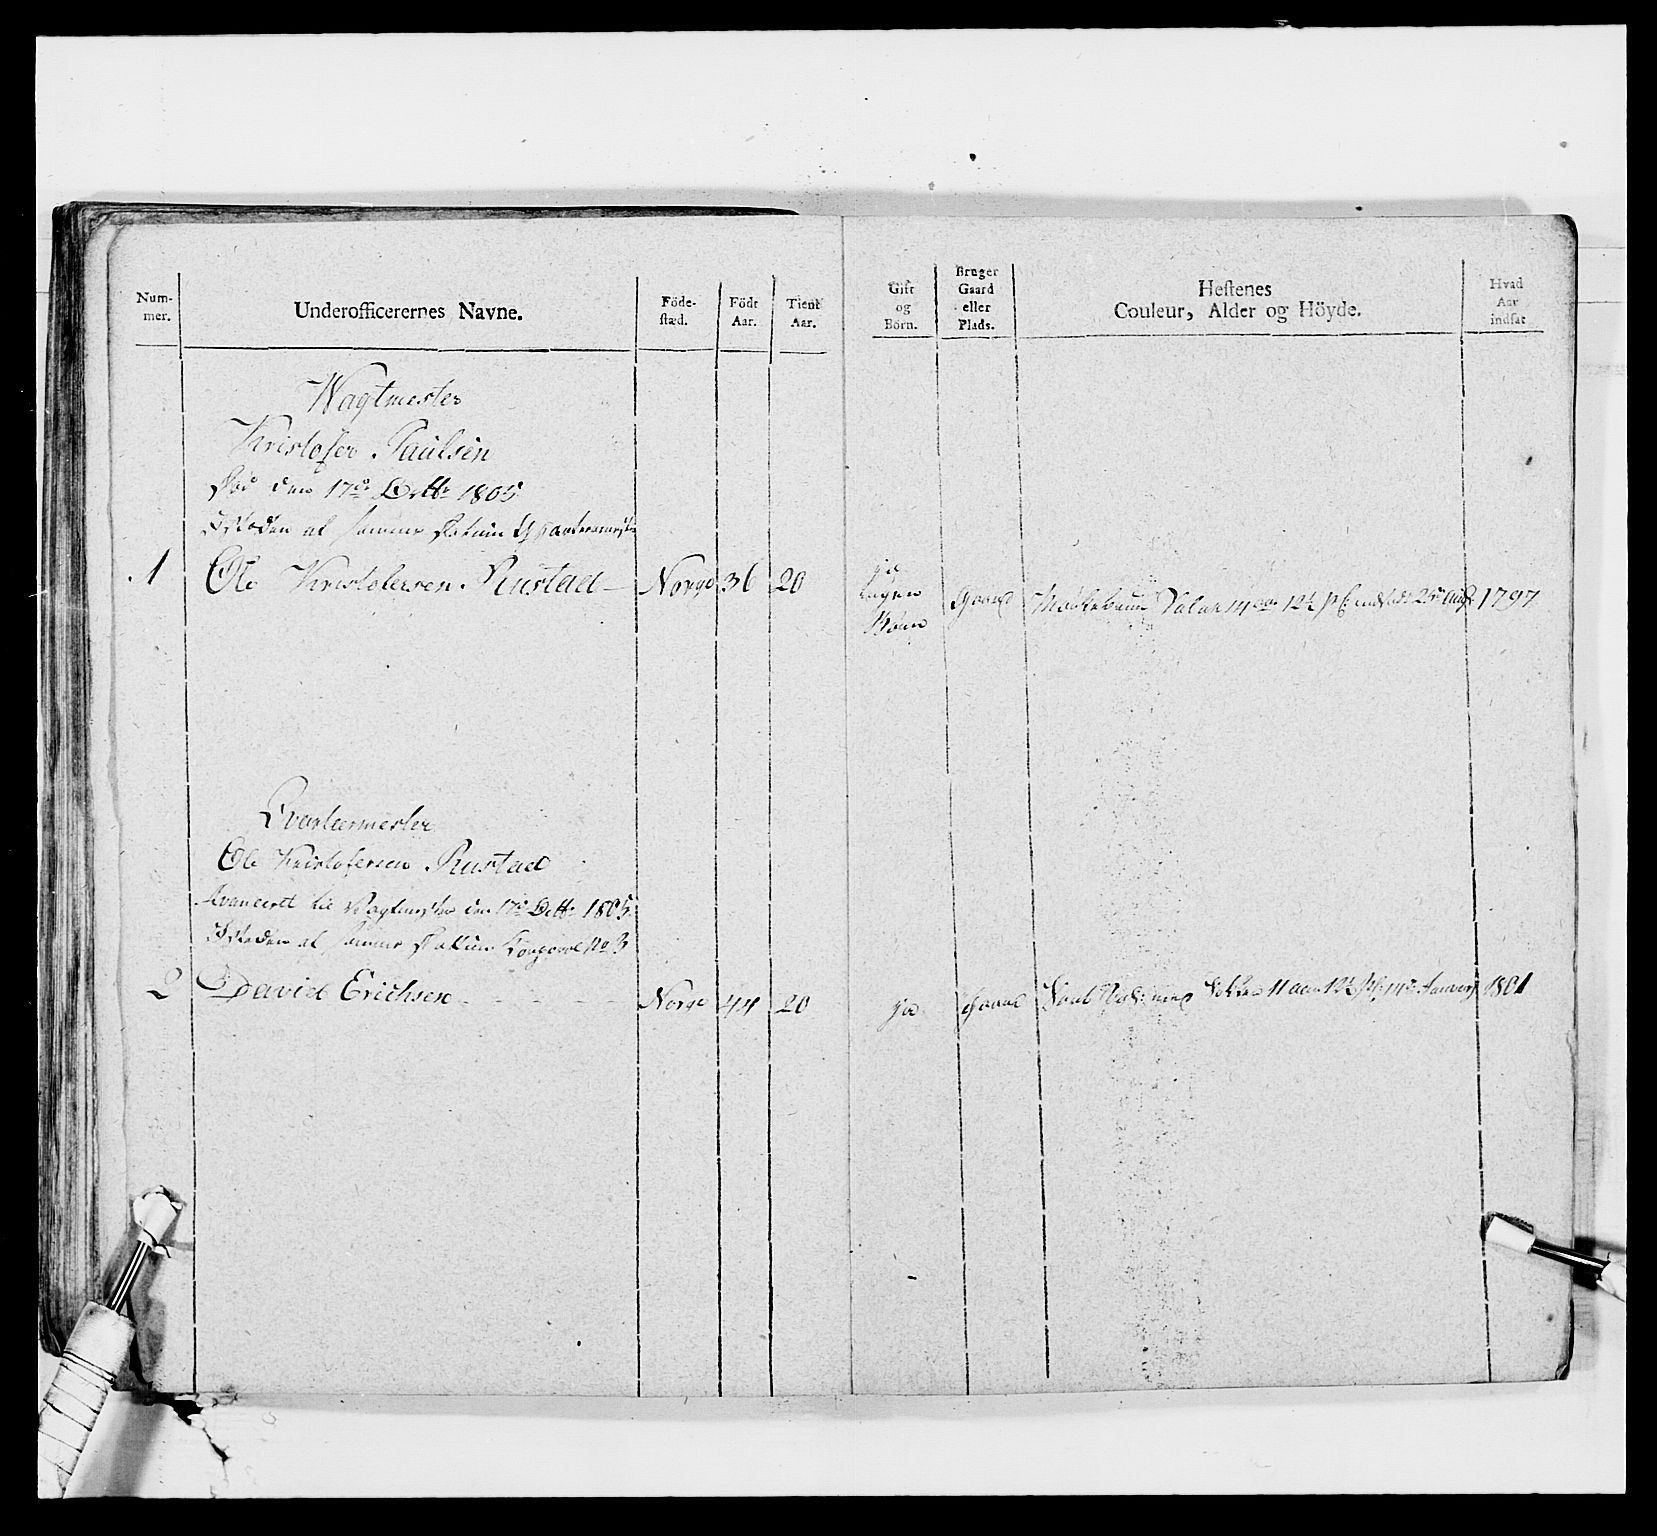 Num-
mer.
Underofficerernes Navne.
Föde-
stæd.
Födt
Aar.
Tient
Aar.
Gift
og
Börn.
Bruger
Gaard
eller
Plads.
Hestenes
Couleur, Alder og Höyde.
Hvad
Aar
indsat
Wagtmester
Kristofer Paulsen
død den 17de Octbr 1805
Isteden af samme Datum Qvarteermester
1 Ole Kristofersen Rustad Norge 36 20 ja ingen Börn Gaard 14 aar 12½ 25de Augst 1797
Qvarteermester
Ole Kristofersen Rustad
Avanceret til Wagtmester den 17de Octbr 1805
Isteden af samme Datum Corporal No 3
2 David Erichsen Norge 44 20 ja Gaard 11 aar 12½ 14de Januarj 1801